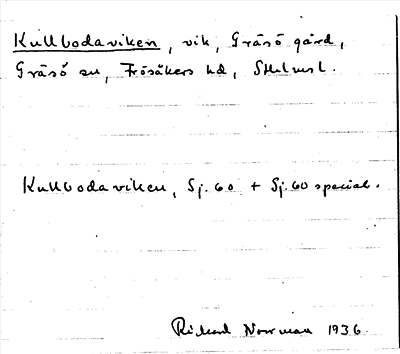 Kullbodaviken, vik, Gräsö gård,
Gräsö sn, Frösåkers hd, Sthlmsl.
Kullbodaviken, Sj. 60 + Sj. 60 special.
Rickard Norrman 1936